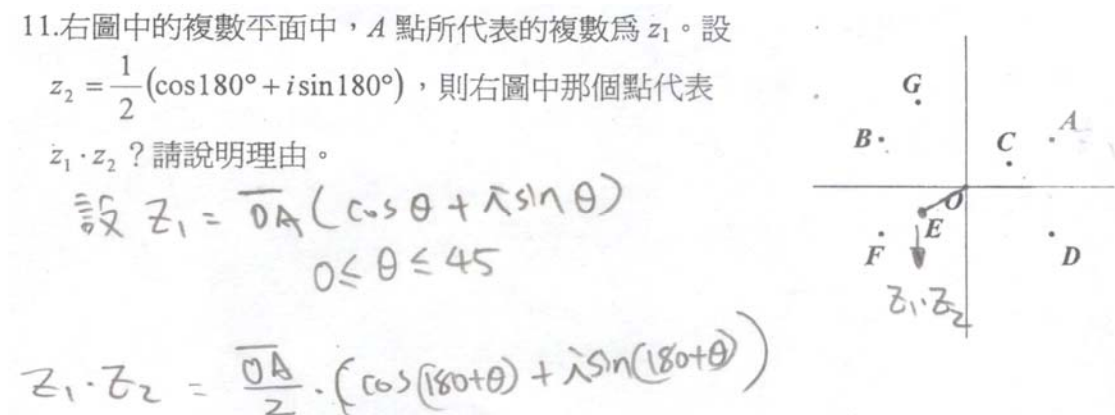 11.右圖中的複數平面中，A 點所代表的複數爲 z₁。設
z₂ = 1/2 (cos180° + i sin180°)，則右圖中那個點代表
z₁ · z₂？請說明理由。
設 Z₁ = O̅A̅ ( cos θ + i sin θ )
0 ≤ θ ≤ 45
Z₁ · Z₂ = O̅A̅/2 · ( cos(180+θ) + i sin(180+θ) )
G
A
B
C
O
E
F
D
Z₁·Z₂